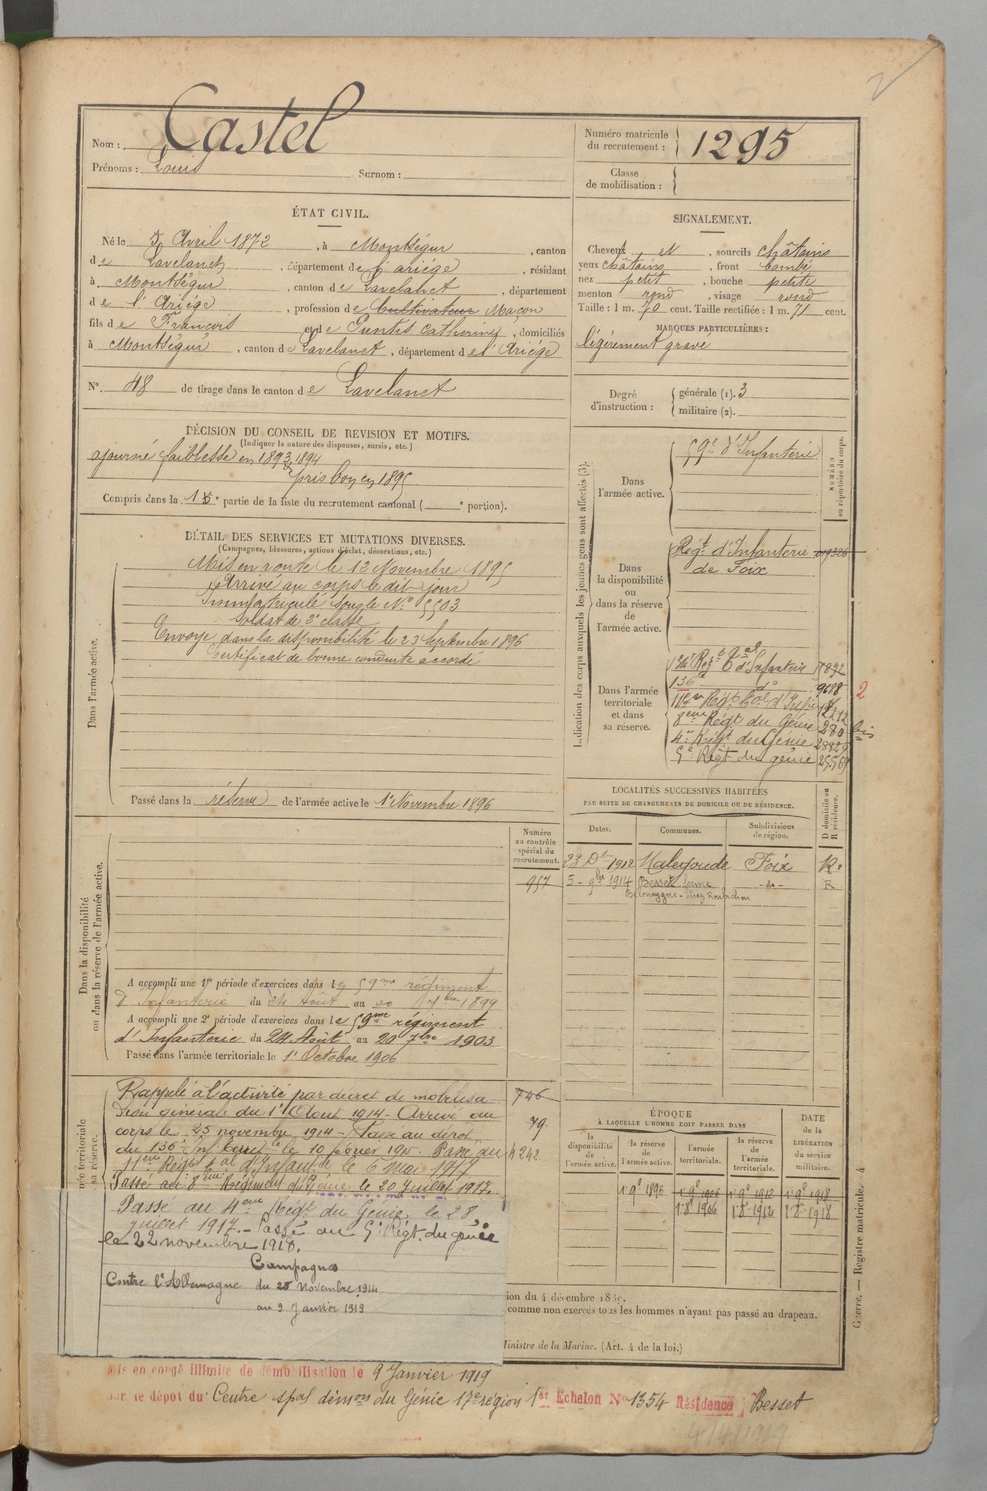 2
Nom : Castel
Prénoms : Louis Surnom :
Numéro matricule du recrutement : 1295
Classe de mobilisation :
ÉTAT CIVIL.
Né le 5 Avril 1872, à Montségur, canton
de Lavelanet, département de l'ariége, résidant
à Montségur, canton de Lavelanet, département
de l'Ariége, profession de Cultivateur Maçon
fils de François et de Puntis Catherine, domiciliés
à Montségur, canton de Lavelanet, département de l'Ariége
N° 48 de tirage dans le canton de Lavelanet
SIGNALEMENT.
Cheveux N, sourcils châtains
yeux châtains, front bombé
nez petit, bouche petite
menton rond, visage rond
Taille : 1 m. 70 cent. Taille rectifiée : 1 m. 71 cent.
MARQUES PARTICULIÈRES :
légèrement gravé
Degré d'instruction : générale (1). 3
militaire (2).
DÉCISION DU CONSEIL DE REVISION ET MOTIFS.
(Indiquer la nature des dispenses, sursis, etc.)
ajourné faiblesse en 1893, 1894
pris bon en 1895
Compris dans la 1e partie de la liste du recrutement cantonal ( e portion).
DÉTAIL DES SERVICES ET MUTATIONS DIVERSES.
(Campagnes, blessures, actions d'éclat, décorations, etc.)
Dans l'armée active.
Mis en route le 12 Novembre 1895
Arrivé au corps le dit jour
Immatriculé sous le N° 5503
soldat de 2e classe
Envoyé dans la disponibilité le 23 Septembre 1896
Certificat de bonne conduite accordé
Passé dans la réserve de l'armée active le 1r Novembre 1896
Indication des corps auxquels les jeunes gens sont affectés (3).
NUMÉRO au répertoire du corps.
Dans l'armée active.
59e d'Infanterie
Dans la disponibilité ou dans la réserve de l'armée active.
Regt d'Infanterie
de Foix
Dans l'armée territoriale et dans sa réserve.
136e do 9678 2
11eme Regt tal d'Infie
8eme Régt du Génie 280 bis
4e Régt du Génie 23829
5e Régt du génie 25569
LOCALITÉS SUCCESSIVES HABITÉES
PAR SUITE DE CHANGEMENTS DE DOMICILE OU DE RÉSIDENCE.
D domicile ou R résidence.
Dates. Communes. Subdivisions de région.
23 Dbre 1912 Malegoude Foix R.
5 - 9bre 1914 Besset ferme -do- R
Dans la disponibilité ou dans la réserve de l'armée active.
Numéro au contrôle spécial du recrutement.
957
A accompli une 1re période d'exercices dans le 59me régiment
d'Infanterie du 24 Août au 20 7bre 1899
A accompli une 2e période d'exercices dans le 59me régiment
d'Infanterie du 24 Août au 20 7bre 1903
Passé dans l'armée territoriale le 1r Octobre 1906
Rappelé à l'activité par décret de mobilisa 746
tion générale du 1r Aout 1914 - Arrivé au
corps le 25 novembre 1914 - Passé au dépôt 79
du 136e Inf. Terrle le 10 février 1915. Passé du 4242
11eme Régt tal d'Infantie le 6 mai 1917
Passé au 8eme Régiment du Génie le 20 Juillet 1917.
Passé au 4eme Régt du Génie le 28
juillet 1917. - Passé au 5e Régt. du génie
le 22 novembre 1918.
Campagnes
Contre l'Allemagne du 25 Novembre 1914
au 9 Janvier 1919
ÉPOQUE
À LAQUELLE L'HOMME DOIT PASSER DANS
DATE de la LIBÉRATION du service militaire.
la disponibilité de l'armée active.
la réserve de l'armée active.
l'armée territoriale.
la réserve de l'armée territoriale.
1r 9e 1896 1r 9e 1906 1r 9e 1912 1r 9e 1918
1-8-1906 1-8-1912 1-8-1918
comme non exercés tous les hommes n'ayant pas passé au drapeau.
Ministre de la Marine. (Art. 4 de la loi.)
Guerre. — Registre matricule. 4
Mis en congé illimité de démobilisation le 9 Janvier 1919
par le dépôt du Centre spal démon du Génie 17e région 1er Echelon No 1354 Résidence Besset
4/4/1919